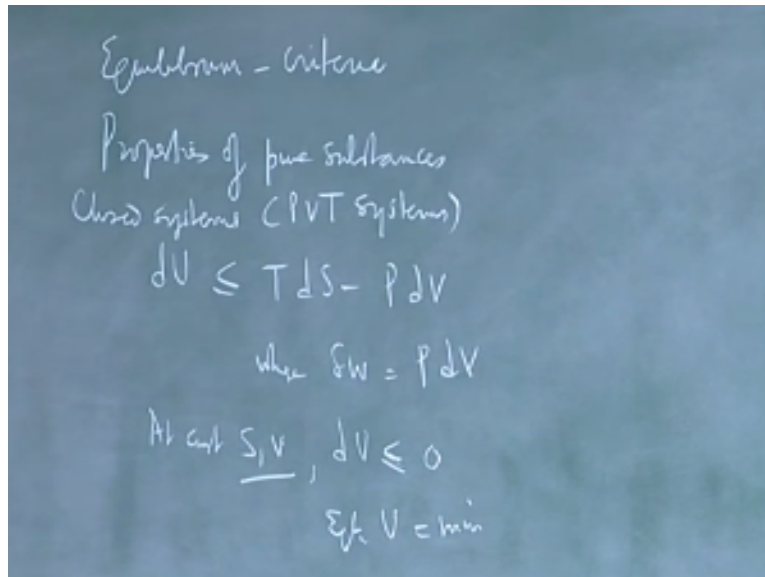 Equilibrium - Criteria
Properties of pure substances
Closed systems (PVT systems)
dU ≤ TdS - PdV
where δW = PdV
At const S, V, dU ≤ 0
Eqb. U = min